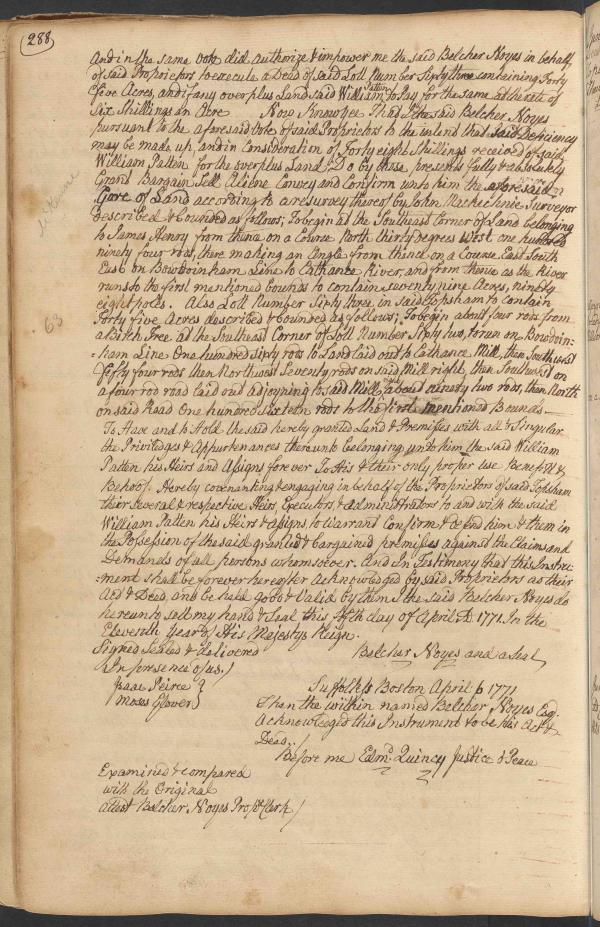 288
And in the same Vote did Authorize & impower me the said Belcher Noyes in behalf
of said Proprietors to execute a Deed of said Lott Number Sixty three containing Forty
five Acres, and if any overplus Land said William Patten to Pay for the same at the rate of
Six Shillings an Acre Now Know yee That I the said Belcher Noyes
pursuant to the aforesaid Vote of said Proprietors to the intend that said Deficiency
may be made up, and in Consideration of Forty eight Shillings received of said
William Patten for the overplus Land Do by these presents fully & absolutely
Grant Bargain Sell Aliene Convey and Confirm unto him the aforesaid
Gore of Land according to a resurvey thereof by John Mackechnie Surveyor
described & bounded as follows; To begin at the Southeast Corner of Land belonging
to James Henry from thence on a Course North thirty degrees West one hundred
ninety four rods, there making an Angle from thence on a Course East South
East on Bowdoinham Line to Cathance River, and from thence as the River
runs to the first mentioned bounds to contain seventy nine Acres, ninety
eight poles. Also Lott Number Sixty three in said Topsham to contain
Forty five Acres described & bounded as follows; To begin about four rods from
a Birch Tree at the Southeast Corner of Lott Number Sixty two, to run on Bowdoin=
=ham Line One hundred sixty rods to Land laid out to Cathance Mill, then Southwest
Fifty four rods then Northwest Seventy rods on said Mill right, then Southwest on
a four rod road laid out adjoyning to said Mill right about ninety two rods, then North
on said Road One hundred Sixteen rods to the first mentioned Bounds—
To Have and to Hold the said hereby granted Land & Premisses with all & Singular
the Priviledges & Appurtenances thereunto belonging unto him the said William
Patten his Heirs and Assigns forever To His & their only proper use Benefitt &
Behoof. Hereby covenanting & engaging in behalf of the Proprietors of said Topsham
their Several & respective Heirs, Executors & Administrators to and with the said
William Patten his Heirs & Assigns to Warrand Confirm & defend him & them in
the Possession of the said granted & bargained premisses against the Claims and
Demands of all persons whomsoever. And In Testimony that this Instru=
=ment shall be forever hereafter Acknowledged by said Proprietors as their
Act & Deed, and be held good & Valid by them I the said Belcher Noyes do
hereunto sett my hand & Seal this fifth day of April AD 1771 In the
Eleventh Year of His Majestys Reign.
Signed Sealed & delivered Belcher Noyes and a Seal
In presence of us.)
Isaac Peirce }
Moses Glover)
Suffolk ss Boston April 5 1771
Than the within named Belcher Noyes Esq.
Acknowledged this Instrument to be his Act &
Deed.
Before me Edmd. Quincy Justice o Peace
Examined & compared
with the Original
attest Belcher Noyes Prop. Clerk
63